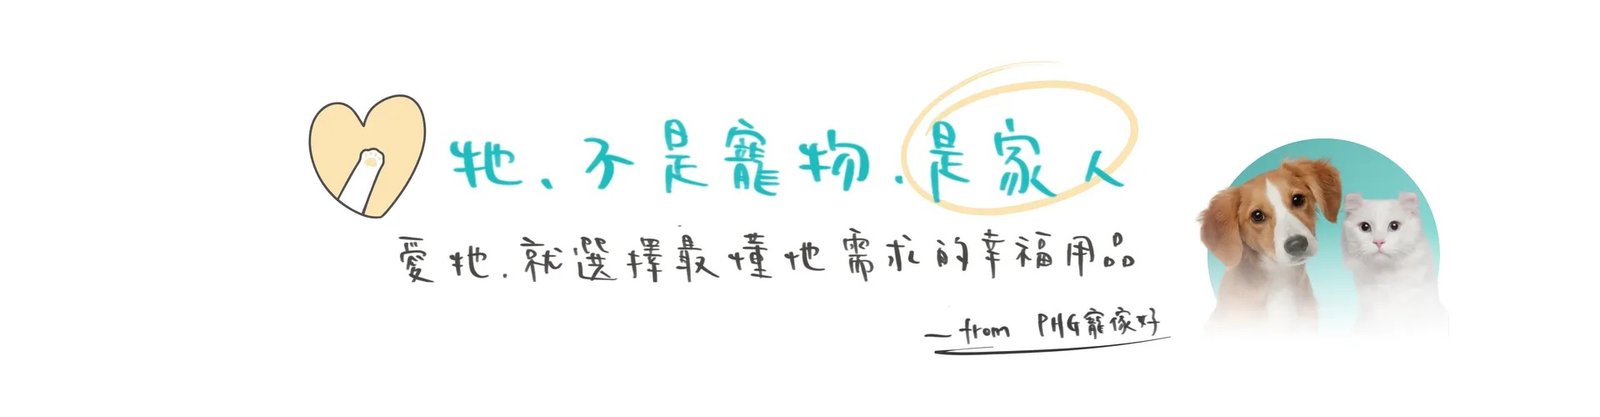 牠、不是寵物．是家人
愛牠．就選擇最懂牠需求的幸福用品
— from PHG寵傢好